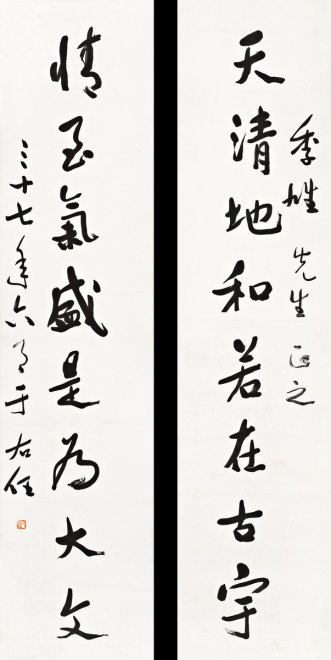 季雄先生正之
天清地和若在古宇
情至氣盛是為大文
三十七年六月于右任